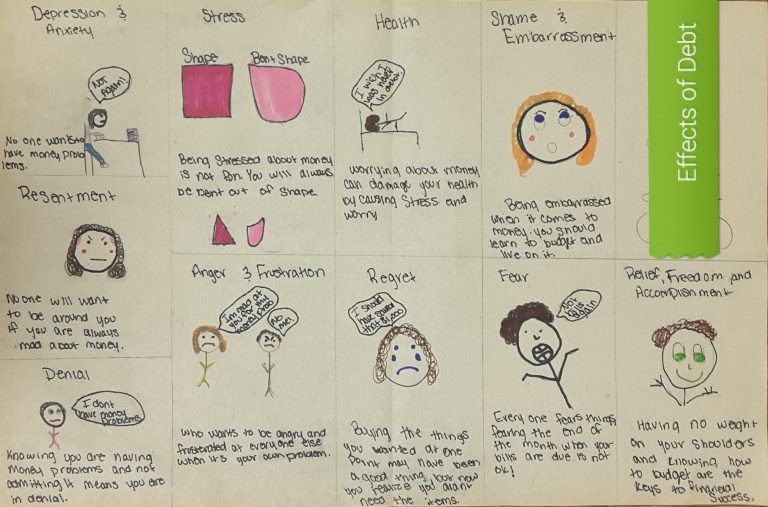 Depression &
Anxiety
Not
Again!
No one wants to
have money prob
lems.
Stress
Shape
Bent Shape
Being stressed about money
is not fon. You will always
be bent out of shape.
Health
I wish I
was never
in debt
worrying about money
can damage your health
by causing stress and
worry
Shame &
Embarrassment
Being embarrassed
when it comes to
money. you should
learn to budget and
live on it.
Effects of Debt
Resentment
No one will want
to be around you
if you are always
mad about money.
Denial
I dont
have money
problems
Knowing you are having
money problems and not
admitting it means you are
in denial.
Anger & Frustration
I'm mad at
you for my
money prob
No
me!
who wants to be angry and
frusterated at everyone else
when it's your own problem.
Regret
I should
have saved
that $1,000
Buying the things
you wanted at one
point may have been
a good thing, but now
you realize you didnt
need the items.
Fear
Not
bills
again
Every one fears things
fearing the end of
the month when your
bills are due is not
ok!
Relief, Freedom, and
Accomplishment
Having no weight
on your shoulders
and knowing how
to budget are the
keys to financial
success.